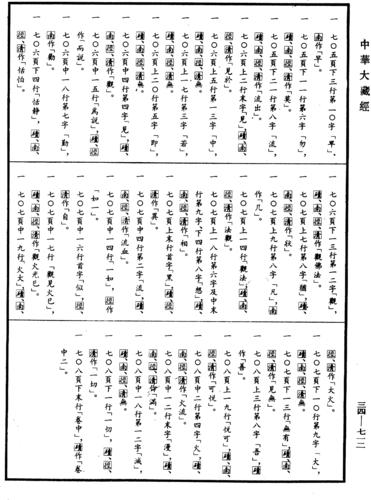 中華大藏經
一 七〇五頁下三行第一〇字「早」，
南作「早」。
一 七〇五頁下一一行第六字「勿」，
磧、南、徑、清作「莫」。
一 七〇五頁下一二行第八字「流」，
磧、南、徑、清作「流出」。
一 七〇六頁上二行末字「見」，磧、南、
徑、清作「見於」。
一 七〇六頁上五行第一三字「中」，
磧、南、徑、清無。
一 七〇六頁上一七行第三字「若」，
磧、南、徑、清無。
一 七〇六頁上二〇行第五字「即」，
南、徑、清作「觀」。
一 七〇六頁中四行第四字「見」，磧、
南、徑、清無。
一 七〇六頁中一五行「爲説」，磧、徑
作「而説」。
一 七〇六頁中一八行第七字「勤」，
南作「動」。
一 七〇六頁下四行「恬静」，磧、南、
徑、清作「恬怕」。
一 七〇六頁下一三行第一二字「觀」，
磧、南、徑、清作「觀佛法」。
一 七〇七頁上七行第八字「𦟛」，磧、
南、徑、清作「狀」。
一 七〇七頁上九行第八字「凡」，南
作「凡」。
一 七〇七頁上一四行「觀法」，磧、南、
徑、清作「法觀」。
一 七〇七頁上一八行第六字及中末
行第九字、下四行第八字「想」，磧、
南、徑、清作「相」。
一 七〇七頁上末行首字「畏」，磧、徑、
清作「異」。
一 七〇七頁中四行第二字「流」，磧、
南、徑、清作「流血」。
一 七〇七頁中一四行「一如」，徑作
「如一」。
一 七〇七頁中一六行首字「似」，徑、
清作「自」。
一 七〇七頁中一七行「觀見火已」，
磧、南、徑、清作「觀火光已」。
一 七〇七頁中一九行「火大」，磧、南、
徑、清作「大火」。
一 七〇七頁下一〇行第九字「大」，
磧、南、徑、清無。
一 七〇七頁下一三行「無有」，磧、南、
徑、清作「見無」。
一 七〇八頁上三行第八字「吾」，磧
作「善」。
一 七〇八頁上一九行「悦可」，磧、南、
徑、清作「可悦」。
一 七〇八頁中二行第四字「火」，磧、
南、徑、清作「火流」。
一 七〇八頁中一二行末字「漫」，磧、
南、徑、清作「滿」。
一 七〇八頁中一八行第一二字「滅」，
磧、南、徑、清無。
一 七〇八頁下一行「一切」，磧、徑、
清作「一切」。
一 七〇八頁下末行「卷中」，磧作「卷
中二」。
三四—七一二